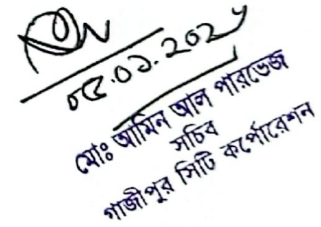 ০৫.০১.২০২৬
মোঃ আমিন আল পারভেজ
সচিব
গাজীপুর সিটি কর্পোরেশন